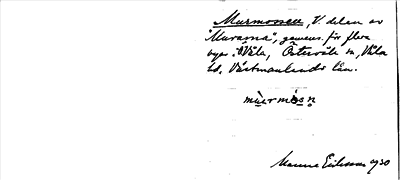 Murmossen, V. delen av
"Murarna", gemens. för flera
byar i Väla, Östervåla sn, Våla
hd. Västmanlands län.
Manne Eriksson 1930